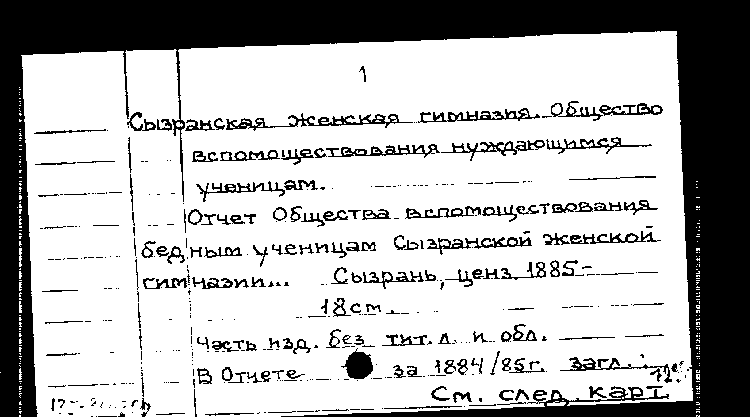 1
Сызранская женская гимназия. Общество
вспомоществования нуждающимся
ученицам.
Отчет Общества вспомоществования
бедным ученицам Сызранской женской
гимназии... Сызрань, ценз. 1885-
18см.
Часть изд. без тит. л. и обл.
В Отчете за 1884/85г. загл.:
См. след. карт.